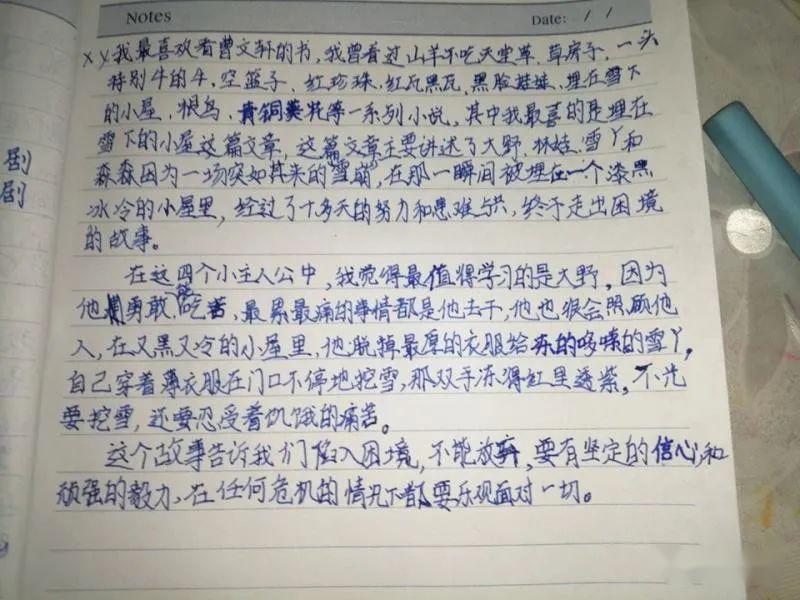 Notes
Date: / /
x y 我最喜欢看曹文轩的书,我曾看过山羊不吃天堂草、草房子、一头
特别牛的牛、空篮子、红珍珠、红瓦黑瓦、黑脸娃娃、埋在雪下
的小屋、根鸟、青铜葵花等一系列小说,其中我最喜的是埋在
雪下的小屋这篇文章,这篇文章主要讲述了大野、林娃、雪丫和
森森因为一场突如其来的雪崩,在那一瞬间被埋在一个漆黑
冰冷的小屋里,经过了十多天的努力和患难与共,终于走出困境
的故事。
在这四个小主人公中,我觉得最值得学习的是大野,因为
他勇敢、能吃苦,最累最痛的事情都是他去干,他也很会照顾他
人,在又黑又冷的小屋里,他脱掉最厚的衣服给冻的哆嗦的雪丫,
自己穿着薄衣服在门口不停地挖雪,那双手冻得红里透紫,不光
要挖雪,还要忍受着饥饿的痛苦。
这个故事告诉我们陷入困境,不能放弃,要有坚定的信心和
顽强的毅力、在任何危机的情况下都要乐观面对一切。
剧
剧